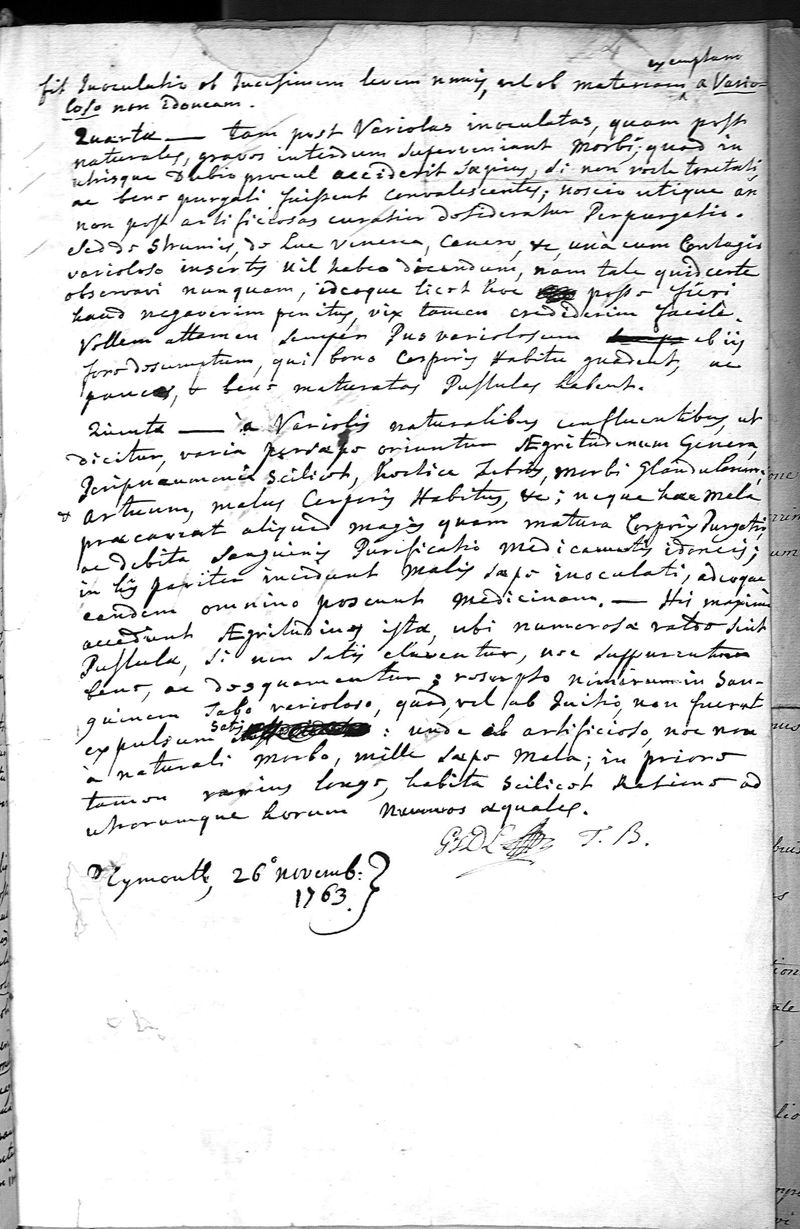 exemptam
fit Inoculatio ob Incisionem levem nimis, vel ob materiam ^ a Vario-
loso non idoneam.
Quarta — tam post Variolas inoculatas, quam post
naturales, graves interdum superveniunt Morbi; quod in
utrisque Dubio procul acciderit sæpius, si non recte tractati,
ac bene purgati fuissent convalescentes; nescio utique an
non post artificiosas curatior desideratur Perpurgatio.
Sed de Strumis, de Lue venerea, Cancro, &c, unà cum Contagio
varioloso insertis nil habeo dicendum, nam tale quid certe
observavi nunquam, ideoque licet hoc posse fieri
haud negaverim penitus, vix tamen crediderim facile.
Vellem attamen semper Pus variolosum ab iis
fore desumptum, qui bono Corporis Habitu gaudent, ac
paucas, & bene maturatas Pustulas habent.
Quinta — à Variolis naturalibus confluentibus, ut
dicitur, varia persæpe oriuntur Ægritudinum Genera,
Peripneumonia scilicet, Hectica Febris, morbi Glandularum,
& Artuum, malus Corporis Habitus, &c; neque hæc Mala
præcaveat aliquid magis quam matura Corporis Purgatio,
ac debita Sanguinis Purificatio medicamentis idoneis;
in his pariter incidunt Malis sæpe inoculati, adeoque
eandem omnino poscunt Medicinam. — His maxime
accedunt Ægritudines istæ, ubi numerosæ valde sint
Pustulæ, si non satis eleventur, nec suppurentur
bene, ac desquamentur; resorpto nimirum in San-
guinem Tabo varioloso, quod vel ab Initio, non fuerat
expulsum satis : unde ab artificioso, nec non
à naturali Morbo, mille sæpe Mala; in priore
tamen rarius longe, habita scilicet Ratione ad
utrorumque horum Numeros æquales.
T. B.
Plymouth, 26° novemb:
1763.